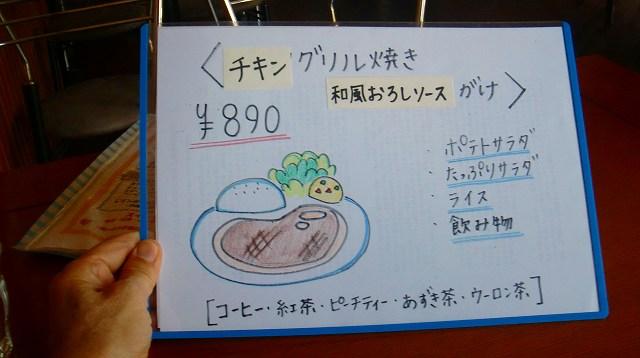 〈チキングリル焼き
和風おろしソースがけ〉
¥890
・ポテトサラダ
・たっぷりサラダ
・ライス
・飲み物
[コーヒー・紅茶・ピーチティー・あずき茶・ウーロン茶]